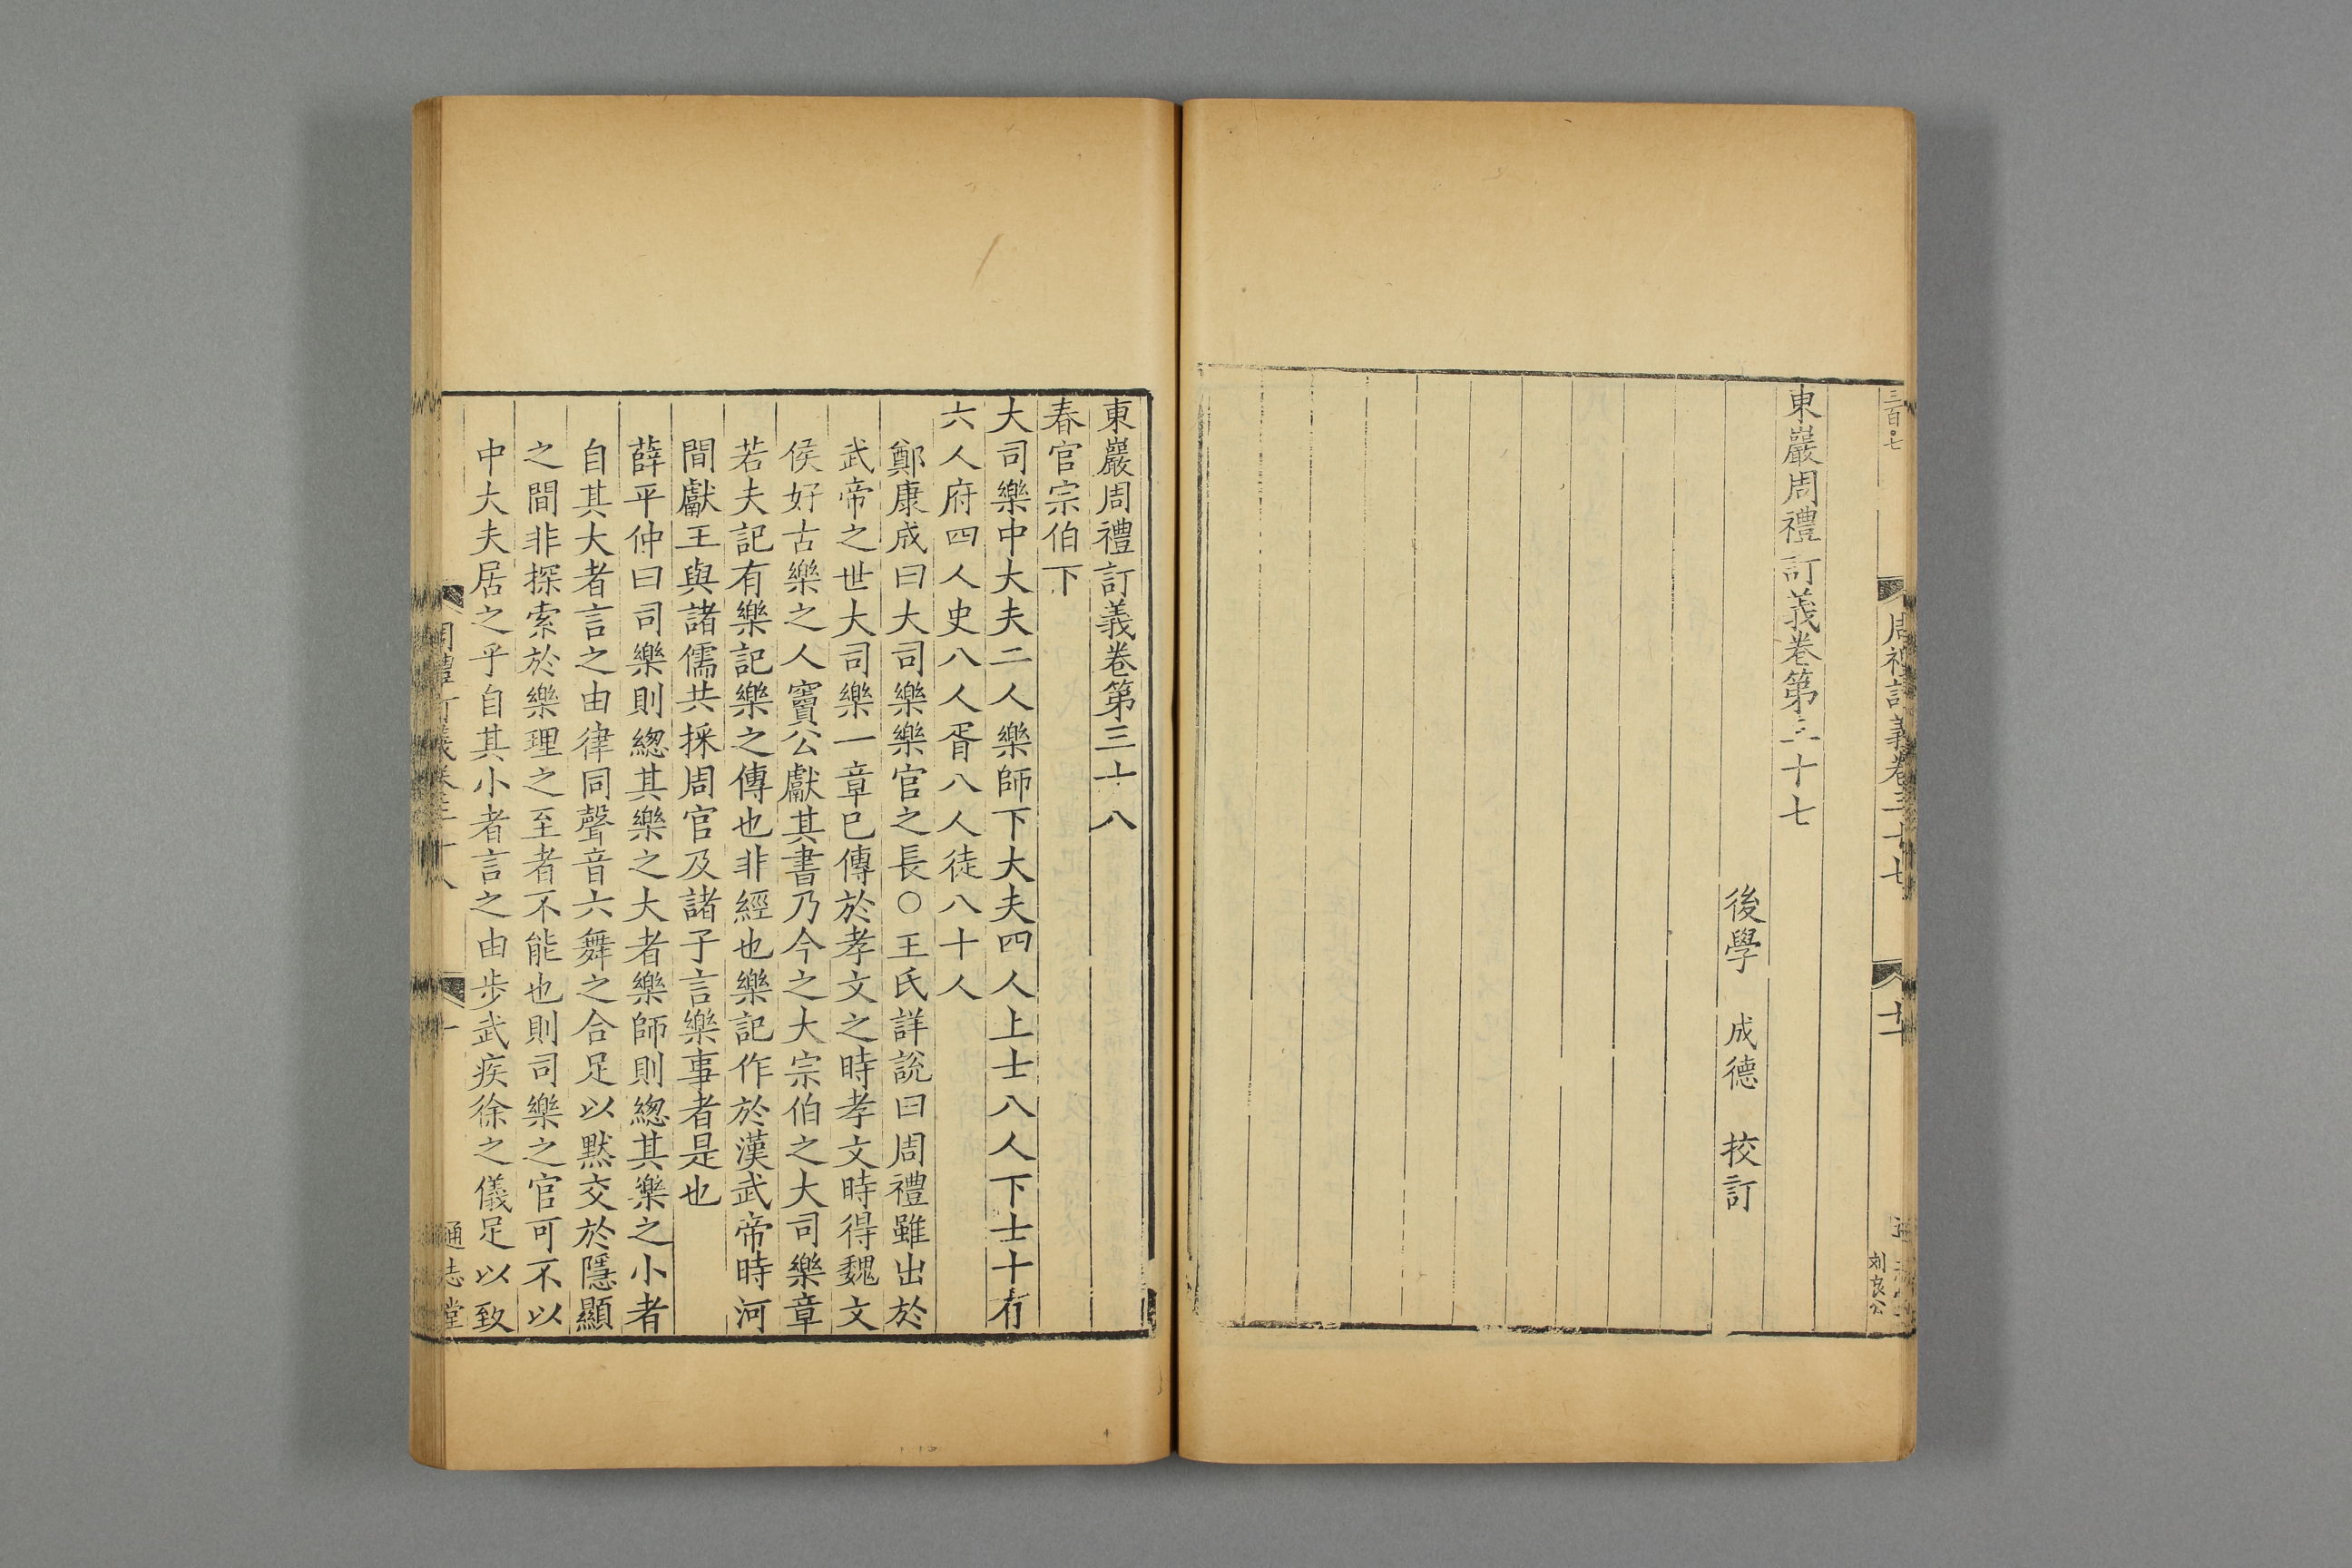 三百〇七
周禮訂義卷三十七
十一
刘良公
東巖周禮訂義卷第三十七
後學 成德 校訂
東巖周禮訂義卷第三十八
春官宗伯下
大司樂中大夫二人樂師下大夫四人上士八人下士十有
六人府四人史八人胥八人徒八十人
鄭康成曰大司樂樂官之長○王氏詳說曰周禮雖出於
武帝之世大司樂一章已傳於孝文之時孝文時得魏文
侯好古樂之人竇公獻其書乃今之大宗伯之大司樂章
若夫記有樂記樂之傳也非經也樂記作於漢武帝時河
間獻王與諸儒共採周官及諸子言樂事者是也
薛平仲曰司樂則緫其樂之大者樂師則緫其樂之小者
自其大者言之由律同聲音六舞之合足以黙交於隱顯
之間非探索於樂理之至者不能也則司樂之官可不以
中大夫居之乎自其小者言之由步武疾徐之儀足以致
周禮訂義卷三十八
一
通志堂